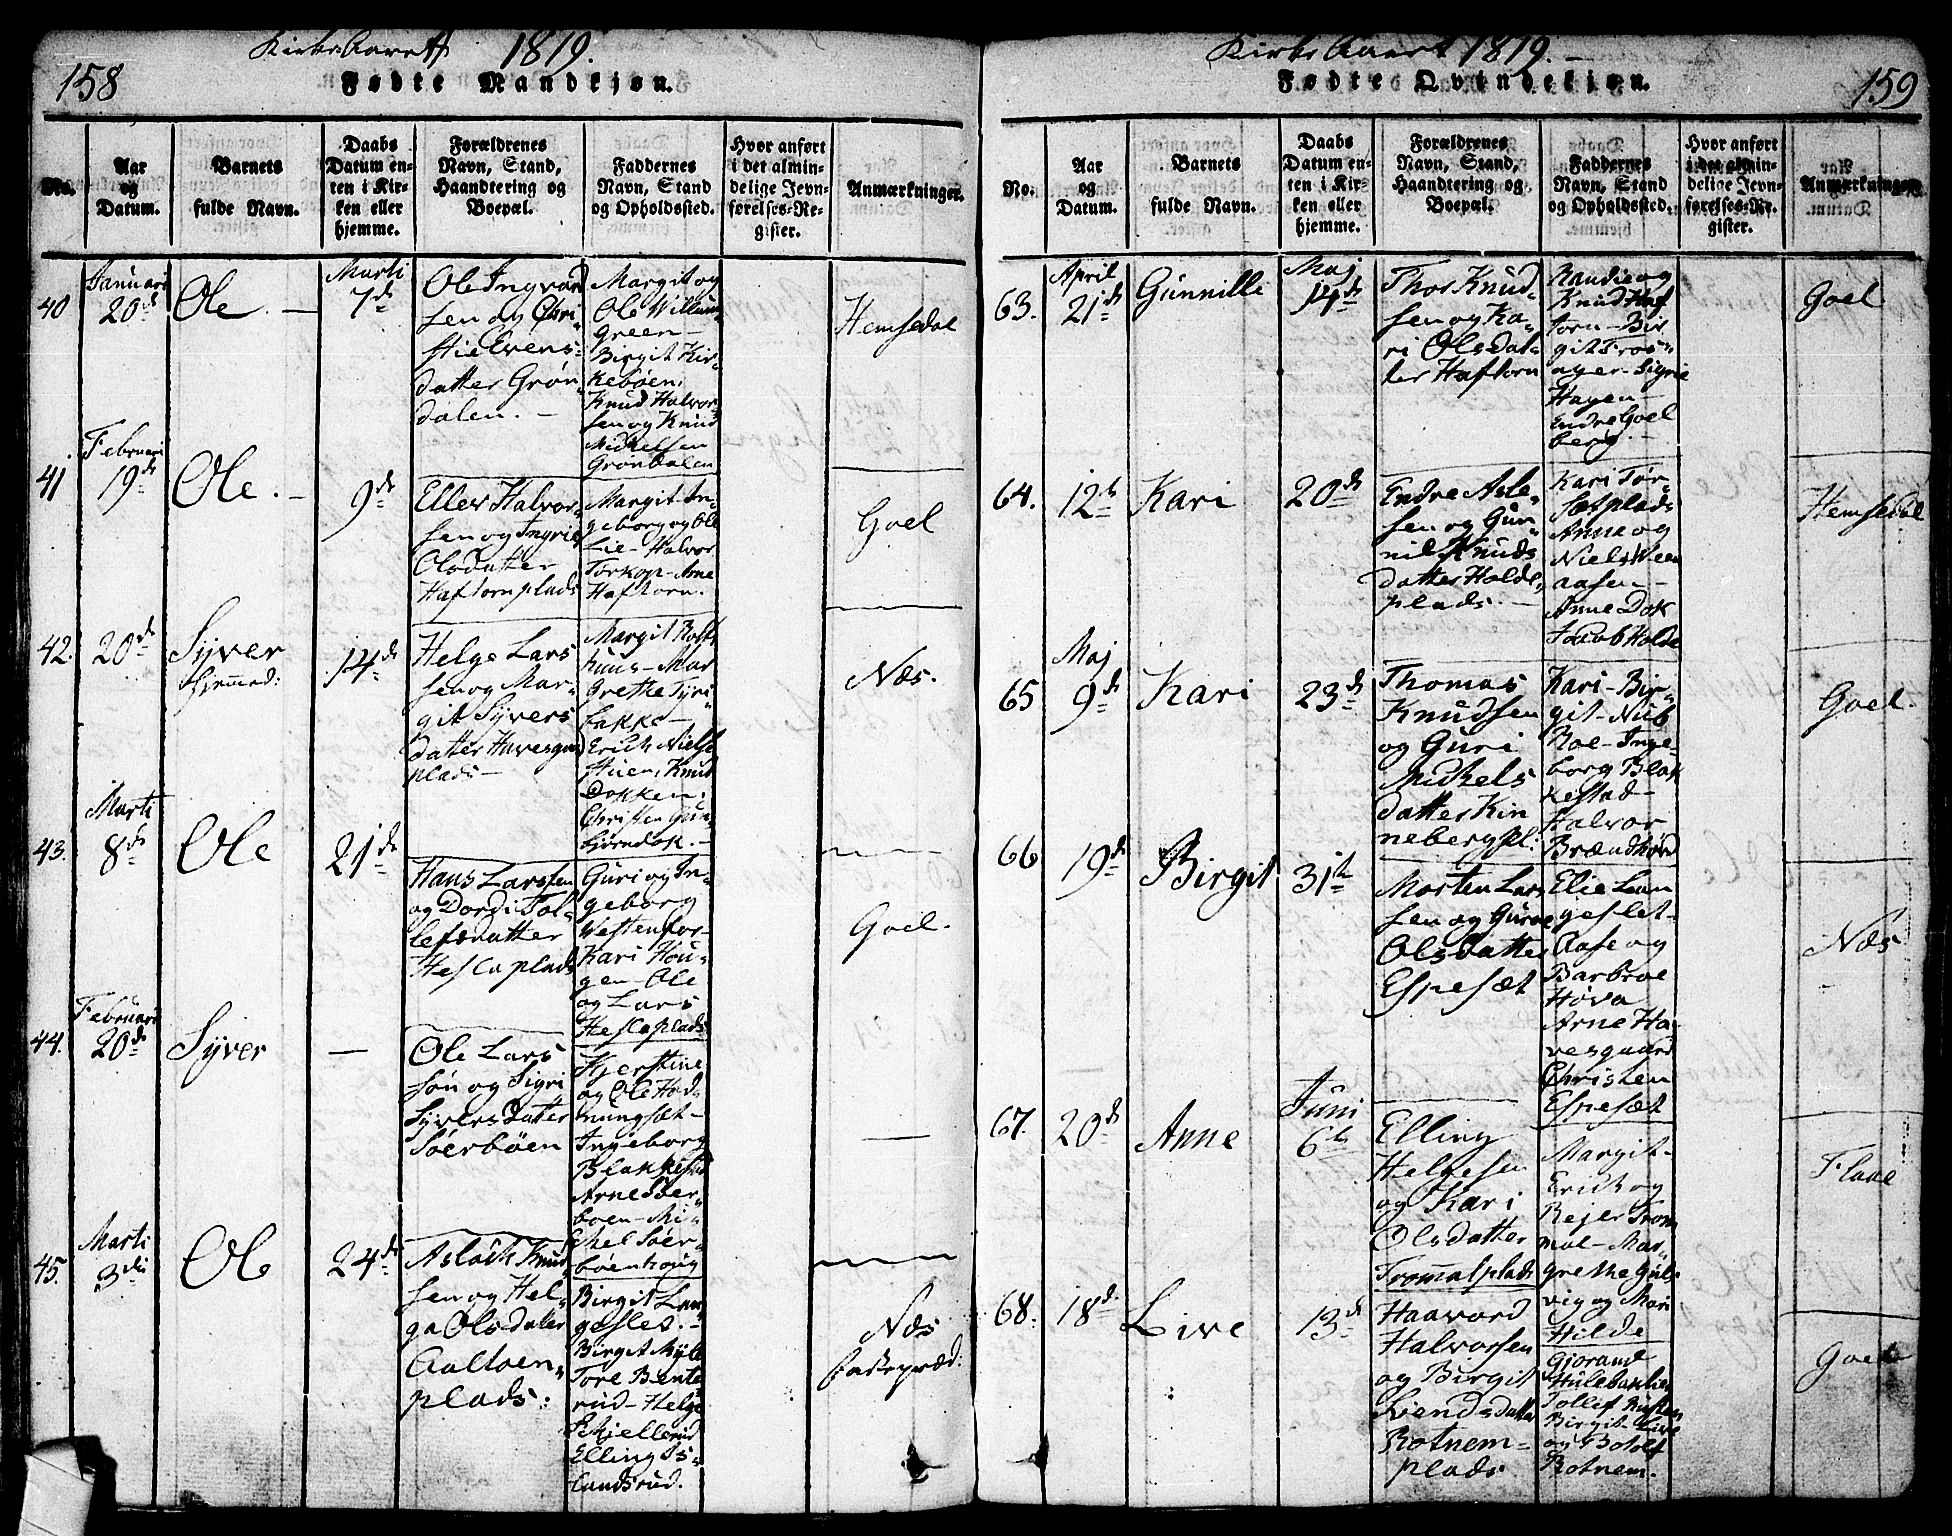 158
Kirke Aaret 1819.
Fødte Mandkjøn.
No.
Aar
og
Datum.
Barnets
fulde Navn.
Daabs
Datum en-
ten i Kir-
ken eller
hjemme.
Forældrenes
Navn, Stand,
Haandtering og
Boepæl.
Faddernes
Navn, Stand
og Opholdssted.
Hvor anført
i det almin-
delige Jevn-
førelses-Re-
gister.
Anmærkninger.
40
Januari
20de
Ole.
Marti
7d
Ole Ingvard
sen og Chri
stie Evens-
datter Grøn
dalen.
Margit og
Ole Willum
Green
Birgit Kir-
keböen,
Knud Halvor-
sen og Knud
Mickelsen
Gröndalen
Hemsedal
41
Februari
19de
Ole.
9de
Eller Halvor-
sen og Ingrie
Olsdatter
Haftorn plads
Margit In-
geborg og Ole
Lie - Halvor
Torkop - Arne
Haftorn.
Goel
42.
20de
Syver
hjemmed:
14de
Helge Lars
sen og Mar-
git Syvers
datter Havesgaard
plads
Margit
huus - Mar
Grethe Tyri-
bakke
Erich Niels
stuen, Knud
Dokken,
Christen Gun-
björndok.
Næs.
43.
Marti
8de
Ole
21de
Hans Larssen
og Dordi Tol-
lefsdatter
Hesla plads
Guri og In-
geborg
Westenfor-
Kari Hou-
gen - Ole
og Lars
Hesla plads
Goel.
44.
Februari
20de
Syver
Ole Lars
sön og Sigri
Syversdatter
Söerböen
Kjerstine
og Ole
nungsæt
Ingeborg
Blakkestad
Arne
boen - Mi-
chel Söer-
böenhoug
45.
Marti
3die
Ole
24de
Aslach Knud
sen og Hel-
ga Olsdater
plads:
Birgit Lan-
geslet.
Birgit
Tore Bente
rud - Helge
Skjellerud
Elling Is-
landsrud.
Næs
159
Kirke Aaret 1819.
Fødte Qvindekjøn.
No.
Aar
og
Datum.
Barnets
fulde Navn.
Daabs
Datum en-
ten i Kir-
ken eller
hjemme.
Forældrenes
Navn, Stand,
Haandtering og
Boepæl.
Faddernes
Navn, Stand
og Opholdssted.
Hvor anført
i det almin-
delige Jevn-
førelses-Re-
gister.
Anmærkninger
63.
April
21de
Gunnille
Maj
14de
Thor Knud-
sen og Ka-
ri Olsdat-
ter Haftorn
Randie og
Knud Haf
torn - Bir-
git
ager - Sigrie
Hagen
Endre Goel
berg.
Goel
64.
12te
Kari
20de
Endre Asle-
sen og Gun-
nil Knuds
datter Holde-
plads.
Kari Tør-
Sætplads
Anne og
Niels Ween
aasen
Anne Dok
Jacob Holde
Hemsedal
65
Maj
9de
Kari
23de
Thomas
Knudsen
og Guri
Mickels
datter Kin
nebergpl:
Kari - Bir-
git - Nub
Roe - Inge-
borg Blak
kestad
Halvor
Brændhörd
Goel.
66
19de
Birgit
31te
Morten Lars
sen og Gurve
Olsdatter
Espesæt
Elie Lan
geslet
Aase og
Barbroe
Höva
Arne Ha-
vesgaard
Christen
Espesæt
Næs
67.
20de
Anne
Juni
6te
Elling
Helgesen
og Kari
Olsdatter
Tromalplads
Margit
Erich og
Rejer Trom
mal - Mar-
grethe Guls
vig og Mari
Hilde
Flaae
68.
18de
Live
13de
Haavord
Halvorsen
og Birgit
Svendsdatter
Rotnem-
plads
Gjorand
Hulebakken
Tollef
Birgit - Live
og Botolf
Rotnem.
Goel